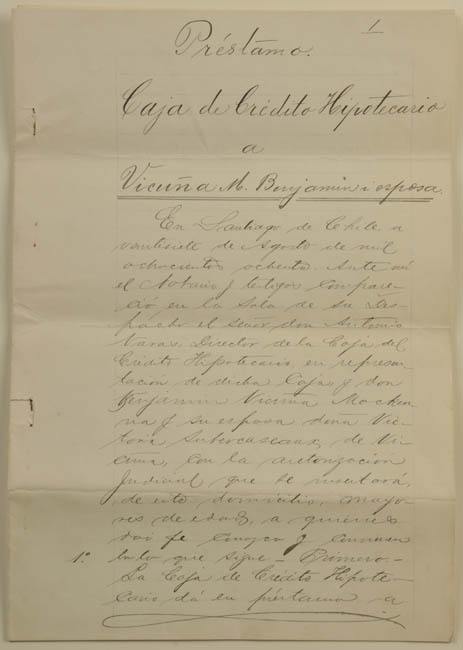 1
Préstamo.
Caja de Crédito Hipotecario
a
Vicuña M. Benjamin i esposa.
En Santiago de Chile, a
veintisiete de Agosto de mil
ochocientos ochenta. Ante mí
el Notario y testigos compare-
ció en la Sala de su Des-
pacho el señor don Antonio
Varas, Director de la Caja del
Crédito Hipotecario, en represen-
tación de dicha Caja, y don
Benjamin Vicuña Macken-
na y su esposa doña Vic-
toria Subercaseaux de Vi-
cuña, con la autorizacion
Judicial que se insertará,
de este domicilio, mayo-
res de edad, a quienes
doi fe conozco y
que sigue - Primero -
1º
La Caja de Crédito Hipote-
cario dá en préstamo a